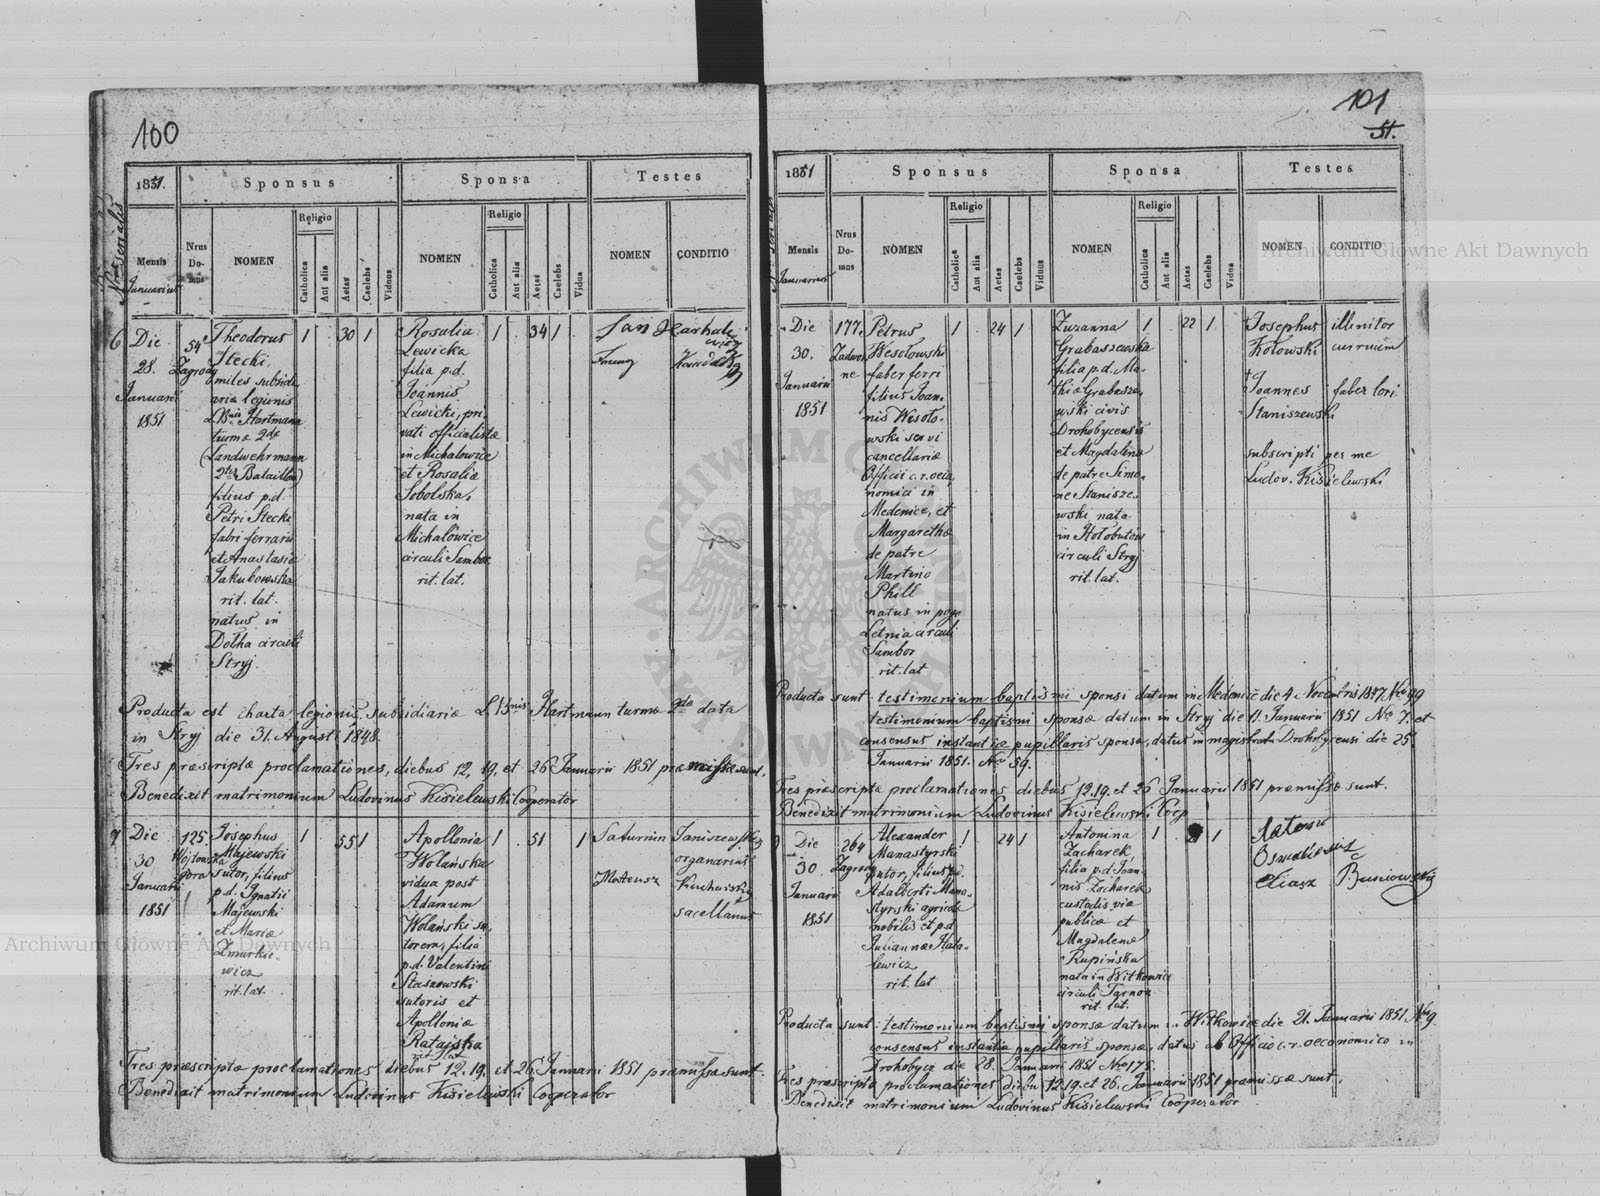 100
1851.
Sponsus
Sponsa
Testes
Nrus serialis
Mensis
Januarius
Nrus Do-mus
NOMEN
Religio
Catholica
Aut alia
Aetas
Caelebs
Viduus
NOMEN
Religio
Catholica
Aut alia
Aetas
Caelebs
Vidua
NOMEN
CONDITIO
6
Die
28.
Januarii
1851
54
Zagrody
Theodorus
Stecki
miles subsidi
ariæ legionis
L. Bnis Hartmann
turmæ 2dæ
(Landwehrmann
2tes Bataillon)
filius p.d.
Petri Stecki
fabri ferrarii
et Anastasiæ
Jakubowska
rit. lat.
natus in
Dołha circuli
Stryj.
1
30
1
Rosalia
Lewicka
filia p.d.
Joannis
Lewicki, pri
vati officialistæ
in Michalowice
et Rosaliæ
Sobolska,
nata in
Michalowice
circuli Sambor.
rit. lat.
1
34
1
Jan
Producta est charta legionis subsidiariæ L. Bnis Hartmann turmæ 2dæ data
in Stryj die 31. Augusti 1848.
Tres præscriptæ proclamationes, diebus 12, 19, et 26 Januarii 1851 præmissæ sunt.
Benedixit matrimonium Ludovinus Kisielewski Cooperator
7
Die
30
Januarii
1851
125.
Wójtowska
góra
Josephus
Majewski
sutor, filius
p.d. Ignatii
Majewski
et Mariæ
Żmurkie-
wicz
rit. lat.
1
55
1
Apollonia
Wolańska
vidua post
Adamum
Wolański su,
torem, filia
p.d. Valentini
Stasnowski
sutoris et
Apolloniæ
Ratajska
rit lat
1
51
1
Saturnin
Janiszewski
organarius
Mateusz
Kucharski
sacellanus
Tres præscriptæ proclamationes diebus 12, 19, et 26 Januarii 1851 præmissæ sunt.
Benedixit matrimonium Ludovinus Kisielewski Cooperator
101
51.
1851
Sponsus
Sponsa
Testes
Mensis
Januarius
Nrus Do-mus
NOMEN
Religio
Catholica
Aut alia
Aetas
Caelebs
Viduus
NOMEN
Religio
Catholica
Aut alia
Aetas
Caelebs
Vidua
NOMEN
CONDITIO
Die
30.
Januarii
1851
177.
Zadwor
ne
Petrus
Wesołowski
faber ferri
filius Joan-
nis Wesoło-
wski servi
cancellariæ
Officii c.r. oeco,
nomici in
Medenice, et
Margarethæ
de patre
Martino
Phill
natus in pago
Letnia circuli
Sambor
rit. lat
1
24
1
Zuzanna
Grabaszewska
filia p.d. Ma-
thiæ Grabasze,
wski civis
Drohobycensis
et Magdalenæ
de patre Simo-
ne Staniszе-
wski nata
in Hołobutów
circuli Stryj
rit. lat.
1
22
1
Josephus
Kołowski
illinitor
curruum
Joannes
Staniszewski
faber lori
subscripti per me
Ludov. Kisielewski
Producta sunt: testimonium baptismi sponsi datum in Medenice die 4. Novembris 1847. Nro 99
testimonium baptismi sponsæ datum in Stryj die 11. Januarii 1851 No 7. et
consensus instantiæ pupillaris sponsæ, datus in magistratu Drohobycensi die 25
Januarii 1851. No 59.
Tres præscriptæ proclamationes diebus 12. 19. et 26 Januarii 1851 præmissæ sunt.
Benedixit matrimonium Ludovinus Kisielewski Coop
Die
30.
Januarii
1851
264
Zagrody
Alexander
Manastyrski
sutor, filius p.d.
Adalberti Mana-
styrski agricolæ
nobilis et p.d.
Juliannæ Hala-
lewicz
rit. lat
1
24
1
Antonina
Zacharek,
filia p.d. Joan-
nis Zacharek
custodis viæ
publicæ et
Magdalenæ
Rupińska
nata in Witkowice
circuli Tarnow
rit. lat.
1
21
1
Eliasz
Buniowski
Producta sunt: testimonium baptismi sponsæ datum in Witkowice die 21. Januarii 1851 Nro 9
consensus instantiæ pupillaris sponsæ, datus ab Officio c.r. oeconomico in
Drohobycz die 28. Januarii 1851 Nro 175.
Tres præscriptæ proclamationes diebus 12. 19. et 26. Januarii 1851 præmissæ sunt.
Benedixit matrimonium Ludovinus Kisielewski Cooperator
Archiwum Główne Akt Dawnych
Archiwum Główne Akt Dawnych